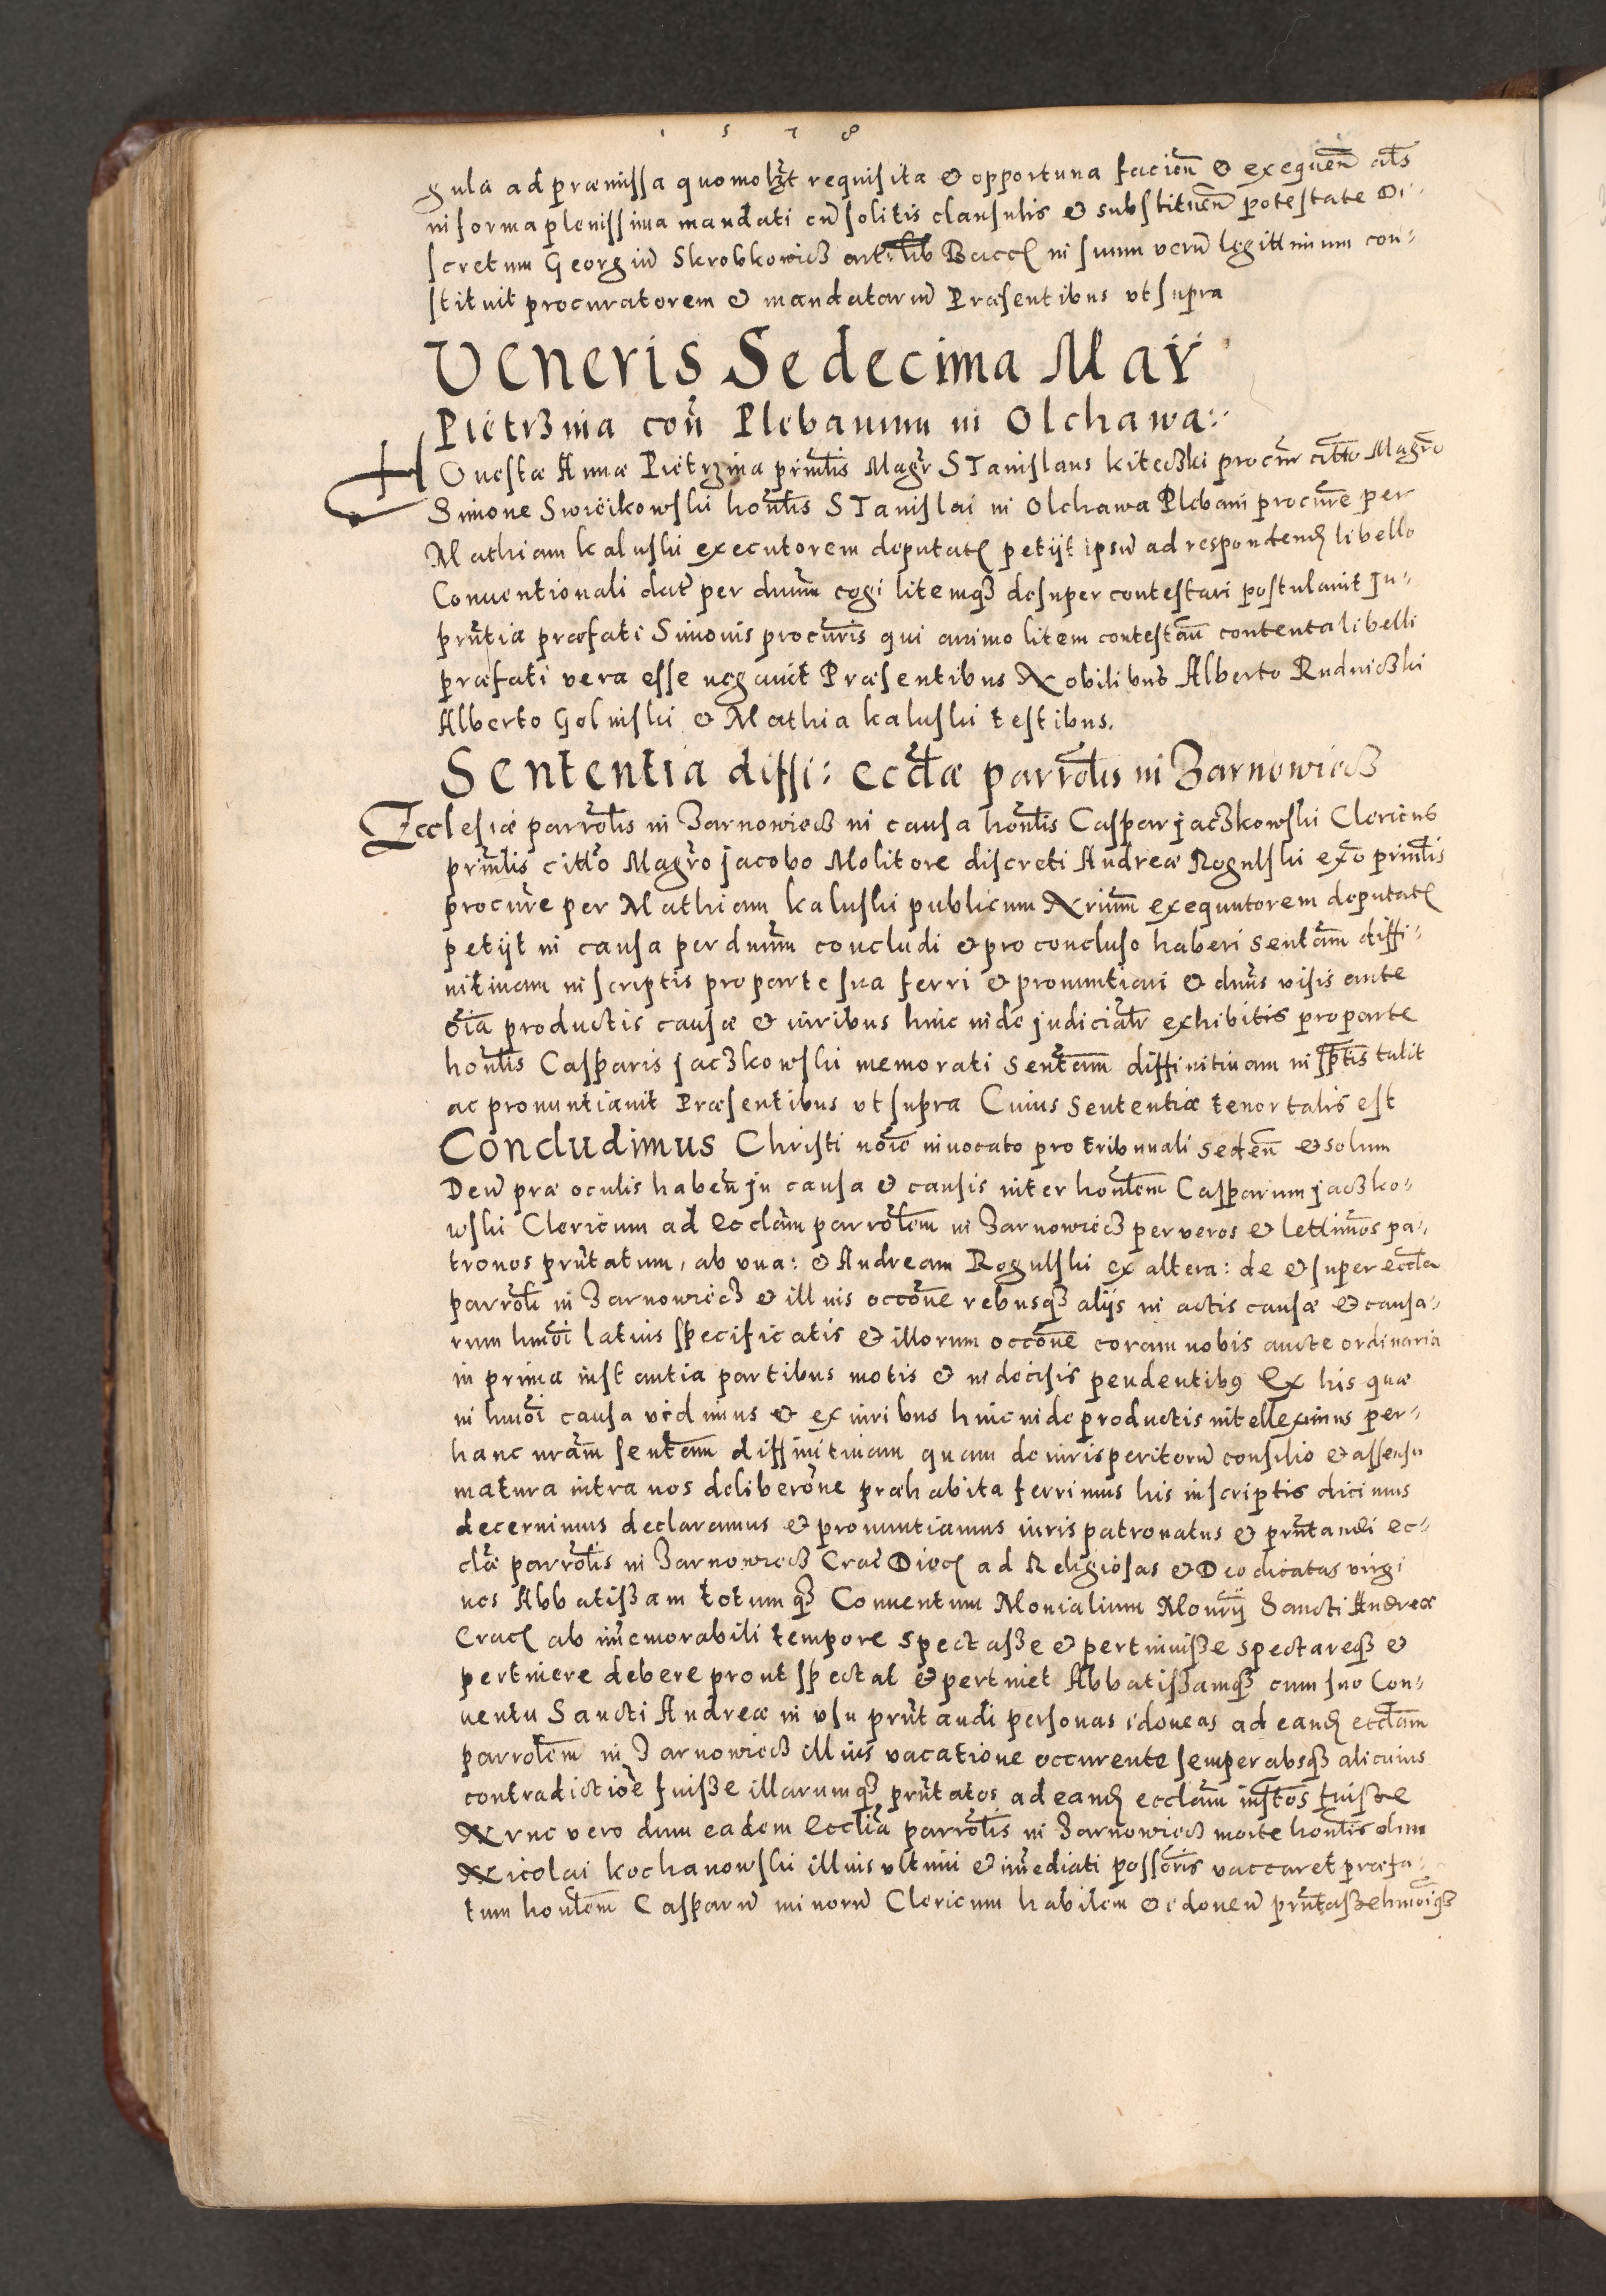 1 5 7 8
gula ad præmissa quomolt requisita & opportuna facien̄ & exequen̄ als
in forma plenissima mandati cū solitis clausulis & substituen̄ potestate Di-
scretum Georgiū Skrobkowicz arti: lib Bacc in suum verū legittimum con-
stituit procuratorem & mandatariū Præsentibus vt supra
Veneris Sedecima Maÿ
Pietrzina con̄ Plebanum in Olchawa:
Honestæ Annæ Pietrzina prinlis Magr Stanislaus kiteczki procur citto Magro
Simone Swieikowski honlis Stanislai in Olchawa Plebani procure per
Mathiam kaluski executorem deputat petijt ipsū ad respondend libello
Conuentionali dat per dnum cogi litemq3 desuper contestari postulauit Ju-
prntia præfati Simonis procuris qui animo litem contestan̄ contenta libelli
præfati vera esse negauit Præsentibus Nobilibus Alberto Rudniczki
Alberto Golinski & Mathia kaluski testibus.
Sententia diffi: eccliæ parrolis in Zarnowiecz
Ecclesiæ parrolis in Zarnowiecz in causa honlis Caspar jaczkowski Clericus
prinlis citto Magro jacobo Molitore discreti Andreæ Rogulski exo prinlis
procure per Mathiam kaluski publicum Nrium exequutorem deputat
petijt in causa per dnum concludi & pro concluso haberi sentam diffi-
nitiuam in scriptis pro parte sua ferri & pronuntiari & dnus visis ante
oīa productis causæ & iuribus hinc inde judicialr exhibitis pro parte
honlis Casparis jaczkowski memorati sentam diffinitiuam in sptis tulit
ac pronuntiauit Præsentibus vt supra Cuius sententiæ tenor talis est
Concludimus Christi noīe inuocato pro tribunali seden̄ & solum
Deū præ oculis haben̄ Ju causa & causis inter honlem Casparum jaczko-
wski Clericum ad ecclam parrolem in Zarnowiecz per veros & lettimos pa-
tronos prntatum, ab vna: & Andream Rogulski ex altera: de & super eccla
parroli in Zarnowiecz & illius occōne rebusq3 alijs in actis causæ & causa-
rum hmoī latius specificatis & illorum occōne coram nobis aucte ordinaria
in prima instantia partibus motis & indecisis pendentib9 Ex his quæ
in hmoī causa vidimus & ex iuribus hinc inde productis intelleximus per-
hanc nram sentam diffinitiuam quam de iurisperitorū consilio & assensu
matura intra nos deliberōne præhabita ferrimus his in scriptis dicimus
decernimus declaramus & pronuntiamus iuris patronatus & prntandi ec-
cliæ parrolis in Zarnowiecz Crac Dioc ad Religiosas & Deo dicatas virgi
nes Abbatißam totumq3 Conuentum Monialium Monrij Sancti Andreæ
Crac ab in̄emorabili tempore spectaße & pertinuiße spectareq3 &
pertinere debere prout spectat & pertinet Abbatißamq3 cum suo Con-
uentu Sancti Andreæ in vsu prntandi personas idoneas ad eand ecclam
parrolem in Zarnowiecz illius vacatione occurente semper absq3 alicuius
contradictiōe fuiße illarumq3 prntatos ad eand ecclam instos fuiße
Nunc vero dum eadem ecclia parrolis in Zarnowiecz morte honlis olim
Nicolai kochanowski illius vltimi & in̄ediati possoris vaccaret præfa-
tum honlem Casparū minorū Clericum habilem & idoneū prntaße hmoīq3